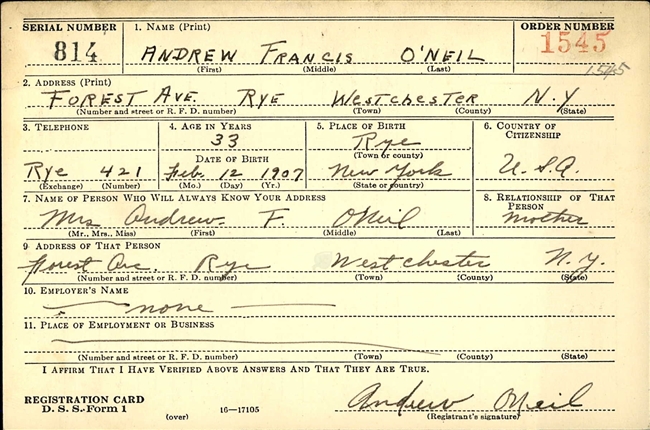 SERIAL NUMBER 1. NAME (Print) ORDER NUMBER
814 ANDREW FRANCIS O'NEIL 1545
(First) (Middle) (Last) 1545
2. ADDRESS (Print)
FOREST AVE. RYE WESTCHESTER N.Y
(Number and street or R. F. D. number) (Town) (County) (State)
3. TELEPHONE 4. AGE IN YEARS 5. PLACE OF BIRTH 6. COUNTRY OF CITIZENSHIP
33 Rye
DATE OF BIRTH (Town or county)
Rye 421 Feb. 12 1907 New York U.S.A.
(Exchange) (Number) (Mo.) (Day) (Yr.) (State or country)
7. NAME OF PERSON WHO WILL ALWAYS KNOW YOUR ADDRESS 8. RELATIONSHIP OF THAT PERSON
Mrs Andrew. F. O'Neil mother
(Mr., Mrs., Miss) (First) (Middle) (Last)
9. ADDRESS OF THAT PERSON
Forest Ave. Rye Westchester N.Y.
(Number and street or R. F. D. number) (Town) (County) (State)
10. EMPLOYER'S NAME
none
11. PLACE OF EMPLOYMENT OR BUSINESS
(Number and street or R. F. D. number) (Town) (County) (State)
I AFFIRM THAT I HAVE VERIFIED ABOVE ANSWERS AND THAT THEY ARE TRUE.
REGISTRATION CARD Andrew O'Neil
D. S. S. Form 1 (over) 16—17105 (Registrant's signature)